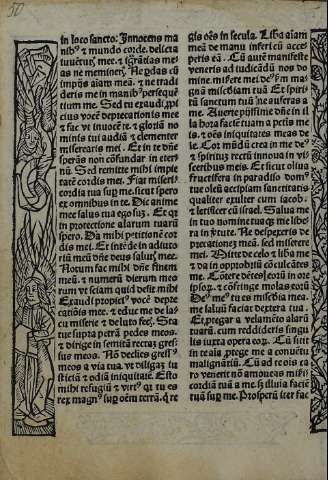 50
in loco sancto. Innocens ma
nibꝰ ⁊ mundo corde. delicta
iuuētutꝭ meę. ⁊ ignorātias me
as ne memineris. Ne ꝑdas cū
impijs aiam meā. ⁊ ne tradi
deris me in manibꝰ persequē
tium me. Sed tu exaudi ꝓpi
cius vocē deprecationis meę
⁊ fac vt inuocē te. ⁊ gloriā no
minis tui audiā ⁊ clementer
miserearis mei. Et in te dn̄e
sperās non cōfundar in eter
nū. Sed remitte mihi impie
tatē cordis mei. Fiat miseri
cordia tua suꝑ me. sicut spero
ex omnibus in te. Dic anime
mee salus tua ego suꝫ. Et qꝛ
in protectione alarum tuarū
spero. Da mihi petitionē cor
dis mei. Et intēde in adiuto
riū meū dn̄e deus salutꝭ mee.
Notum fac mihi dn̄e finem
meū. ⁊ numerū dierum meo
rum vt sciam quid desit mihi
Exaudi propiciꝰ vocē depre
catiōis mee. ⁊ educ me de la-
cu miserie ⁊ de luto fecꝭ. Sta
tue supra petrā pedes meos.
⁊ dirige in semitā rectaꝫ gres
sus meos. Nō declies gressꝰ
meos a via tua. vt diligaꝫ iu
sticiā ⁊ odiā iniquitatē. Esto
mihi refugiū ⁊ virtꝰ qꝛ tu es
rex magnꝰ suꝑ oēm terrā. ⁊ re
gis oēs in secula. Libā aiam
meā de manu inferi cū acce
peris eā. Cū autē manifeste
veneris ad iudicādū nos do
mine. miserere mei deꝰ ẜm ma
gnā miscdiam tuā Et spiri
tū sanctum tuū ne auferas a
me. Auerte pijssime dn̄e in il
la hora faciē tuam a petīs me
is. ⁊ oēs iniquitates meas de
le. Cor mūdū crea in me deꝰ
⁊ spiritū rectū innoua in vi-
sceribus meis. Et sicut oliua
fructifera in paradiso domꝰ
tue oleū accipiam sanctitatis
qualiter exulter cum iacob.
⁊ letificer cū israel. Saluū me
in tuo nomine tuaqꝫ me libe
ra in ꝟtute. Ne despexeris de
pcationeꝫ meā. sed miserere
mei. Mitte de celo ⁊ liba me
⁊ da in opprobriū cōculcātes
me. Cōtere dētes eoꝝ in ore
ipsoꝝ. ⁊ cōfringe molas eorū
Deꝰ meꝰ tu es miscdia mea.
me saluū facia; dextera tua.
Et ꝓtegar a velamēto alarū
tuarū. cum reddideris singu
lis iuxta opera eoꝝ. Cū sicut
in te aia. ꝓtege me a conuētu
malignātiū. Cū ad te oīs ca
ro venerit nō amoueas mise
cordiā tuā a me. sꝫ illuīa faciē
tuā suꝑ me. Prosperū iter fac